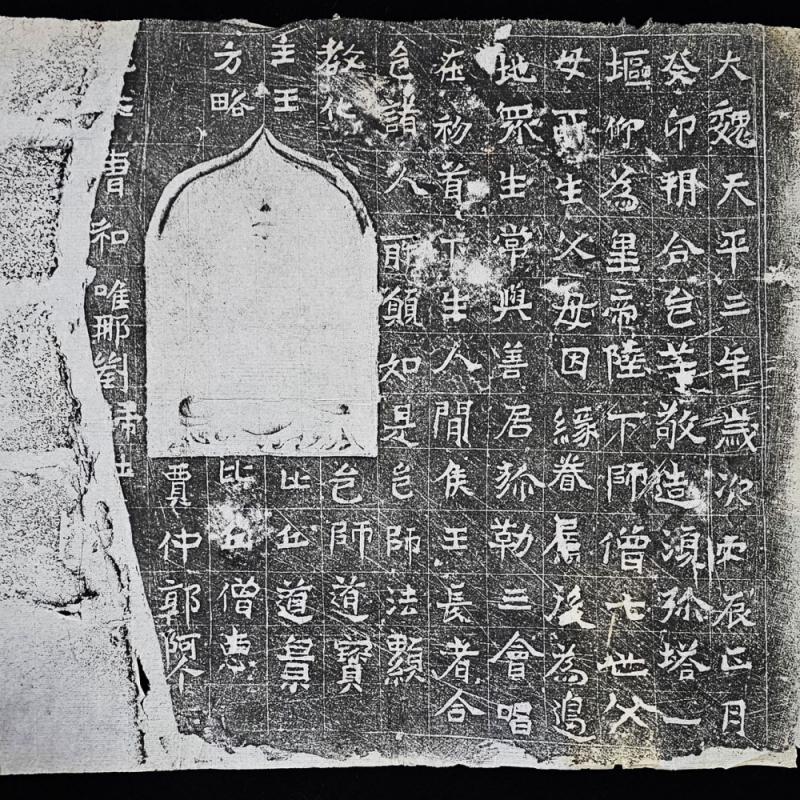 大魏天平三年歲次丙辰正月
癸卯朔合邑等敬造須弥塔一
塸仰為皇帝陛下師僧七世父
母所生父母因緣眷屬後為邊
地眾生常與善居弥勒三會唱
在初首下生人間侯王長者合
邑諸人所願如是邑師法顯
教化邑師道寶
主王比丘道
方略比丘僧惠
賈仲郭阿
曹和唯那劉